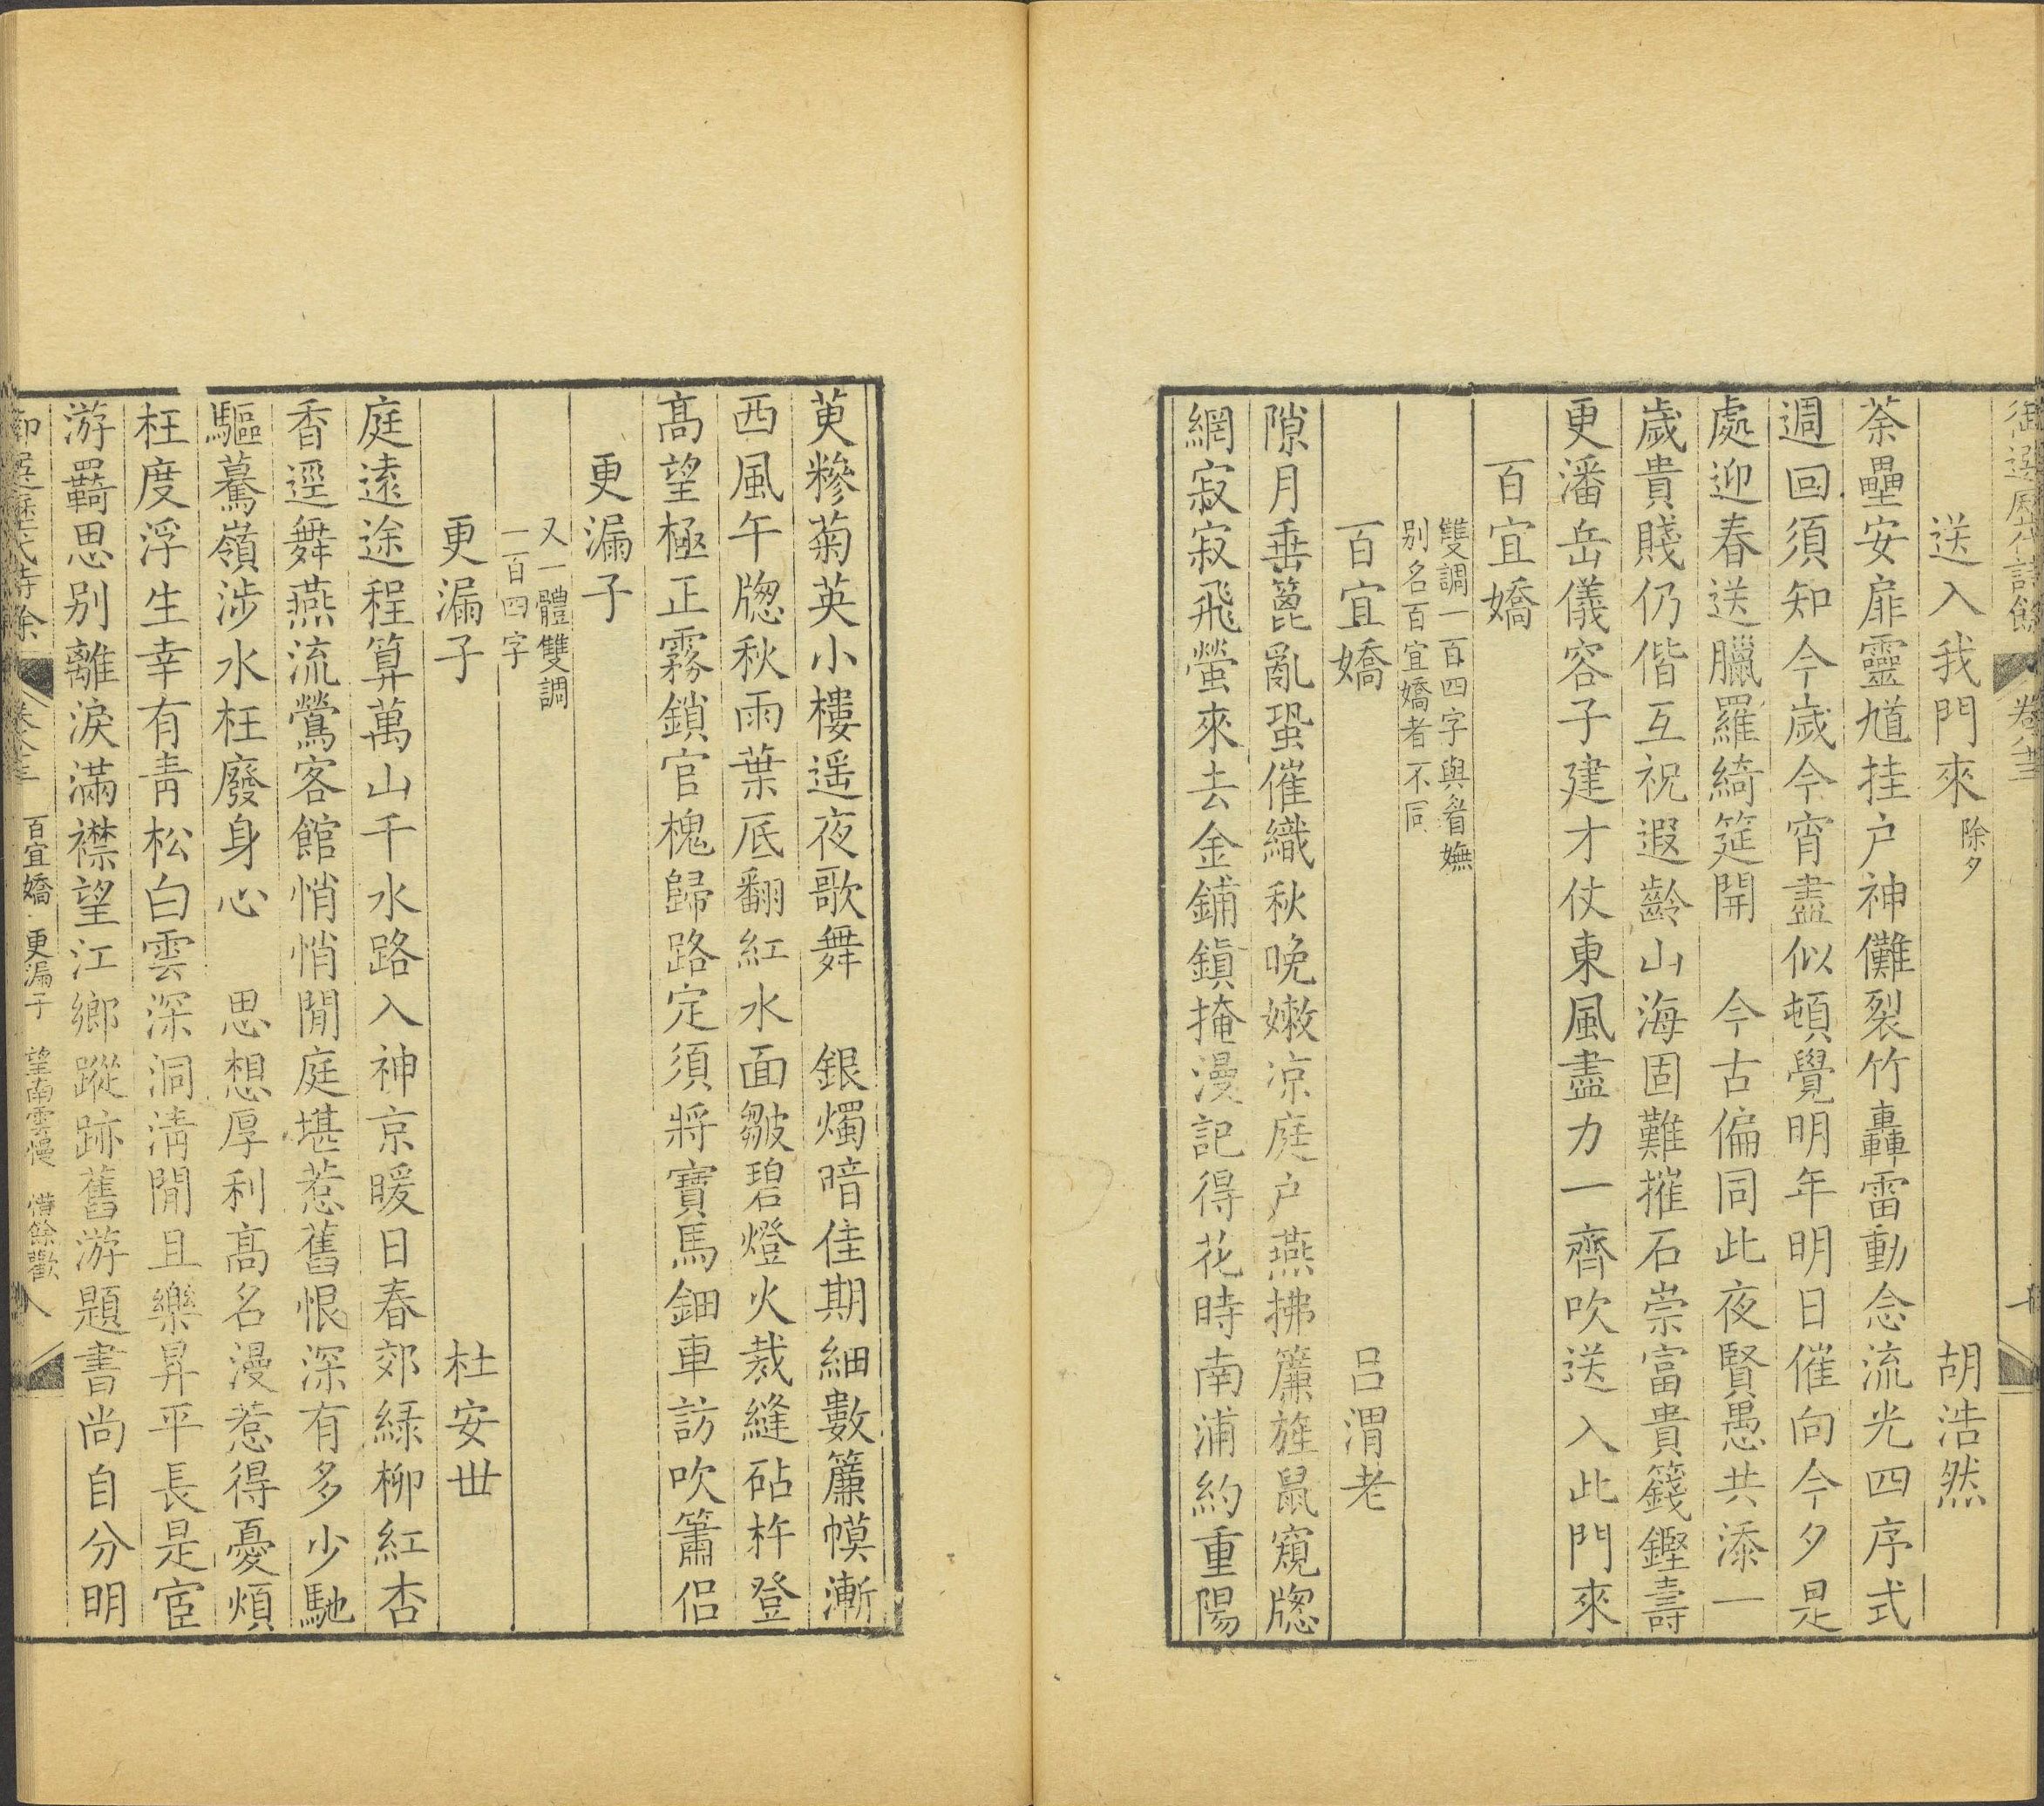 御選歷代詩餘 卷八十三
送入我門來 除夕 胡浩然
荼壘安扉靈馗挂户神儺裂竹轟雷動念流光四序式
週回須知今歲今宵盡似頓覺明年明日催向今夕是
處迎春送臘羅綺筵開 今古偏同此夜賢愚共添一
歲貴賤仍偕互祝遐齡山海固難摧石崇富貴籛鏗壽
更潘岳儀容子建才仗東風盡力一齊吹送入此門來
百宜嬌
雙調一百四字與眉嫵
别名百宜嬌者不同
百宜嬌 吕渭老
隙月垂篦亂蛩催織秋晚嫩凉庭户燕拂簾旌鼠窺牕
網寂寂飛螢來去金鋪鎭掩漫記得花時南浦約重陽
萸糝菊英小樓遥夜歌舞 銀燭暗佳期細數簾幙漸
西風午牕秋雨葉底翻紅水面皺碧燈火裁縫砧杵登
髙望極正霧鎖官槐歸路定須將寶馬鈿車訪吹簫侣
更漏子
又一體雙調
一百四字
更漏子 杜安世
庭遠途程算萬山千水路入神京暖日春郊綠柳紅杏
香逕舞燕流鶯客館悄悄閒庭堪惹舊恨深有多少馳
驅驀嶺涉水枉廢身心 思想厚利髙名漫惹得憂煩
枉度浮生幸有靑松白雲深洞清閒且樂昇平長是宦
游羈思别離淚滿襟望江鄉蹤跡舊游題書尚自分明
御選歷代詩餘 卷八十三 百宜嬌 更漏子 望南雲慢 惜餘歡 八